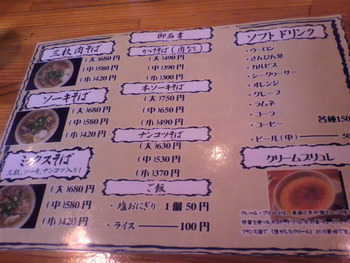 三枚肉そば
(大)680円
(中)580円
(小)420円
ソーキそば
(大)680円
(中)580円
(小)420円
ミックスそば
三枚、ソーキ、ナンコツ入り
(大)680円
(中)580円
(小)420円
御品書
かけそば(肉なし)
(大)490円
(中)390円
(小)300円
本ソーキそば
(大)750円
(中)650円
(小)500円
ナンコツそば
(大)630円
(中)530円
(小)370円
ご飯
・塩おにぎり 1個50円
・ライス――100円
ソフトドリンク
・ウーロン
・さんぴん茶
・カルピス
・シークヮーサー
・オレンジ
・グレープ
・ラムネ
・コーラ
・コーヒー
各種150
・ビール(中)――50
クリームブリュレ